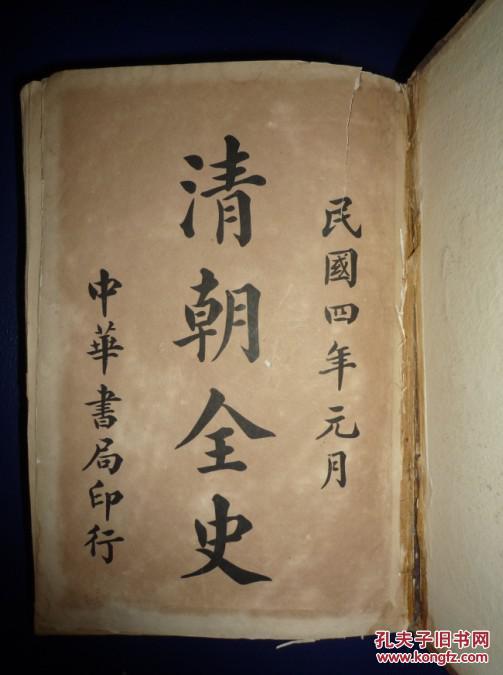 民國四年元月
清朝全史
中華書局印行
孔夫子旧书网
www.kongfz.com